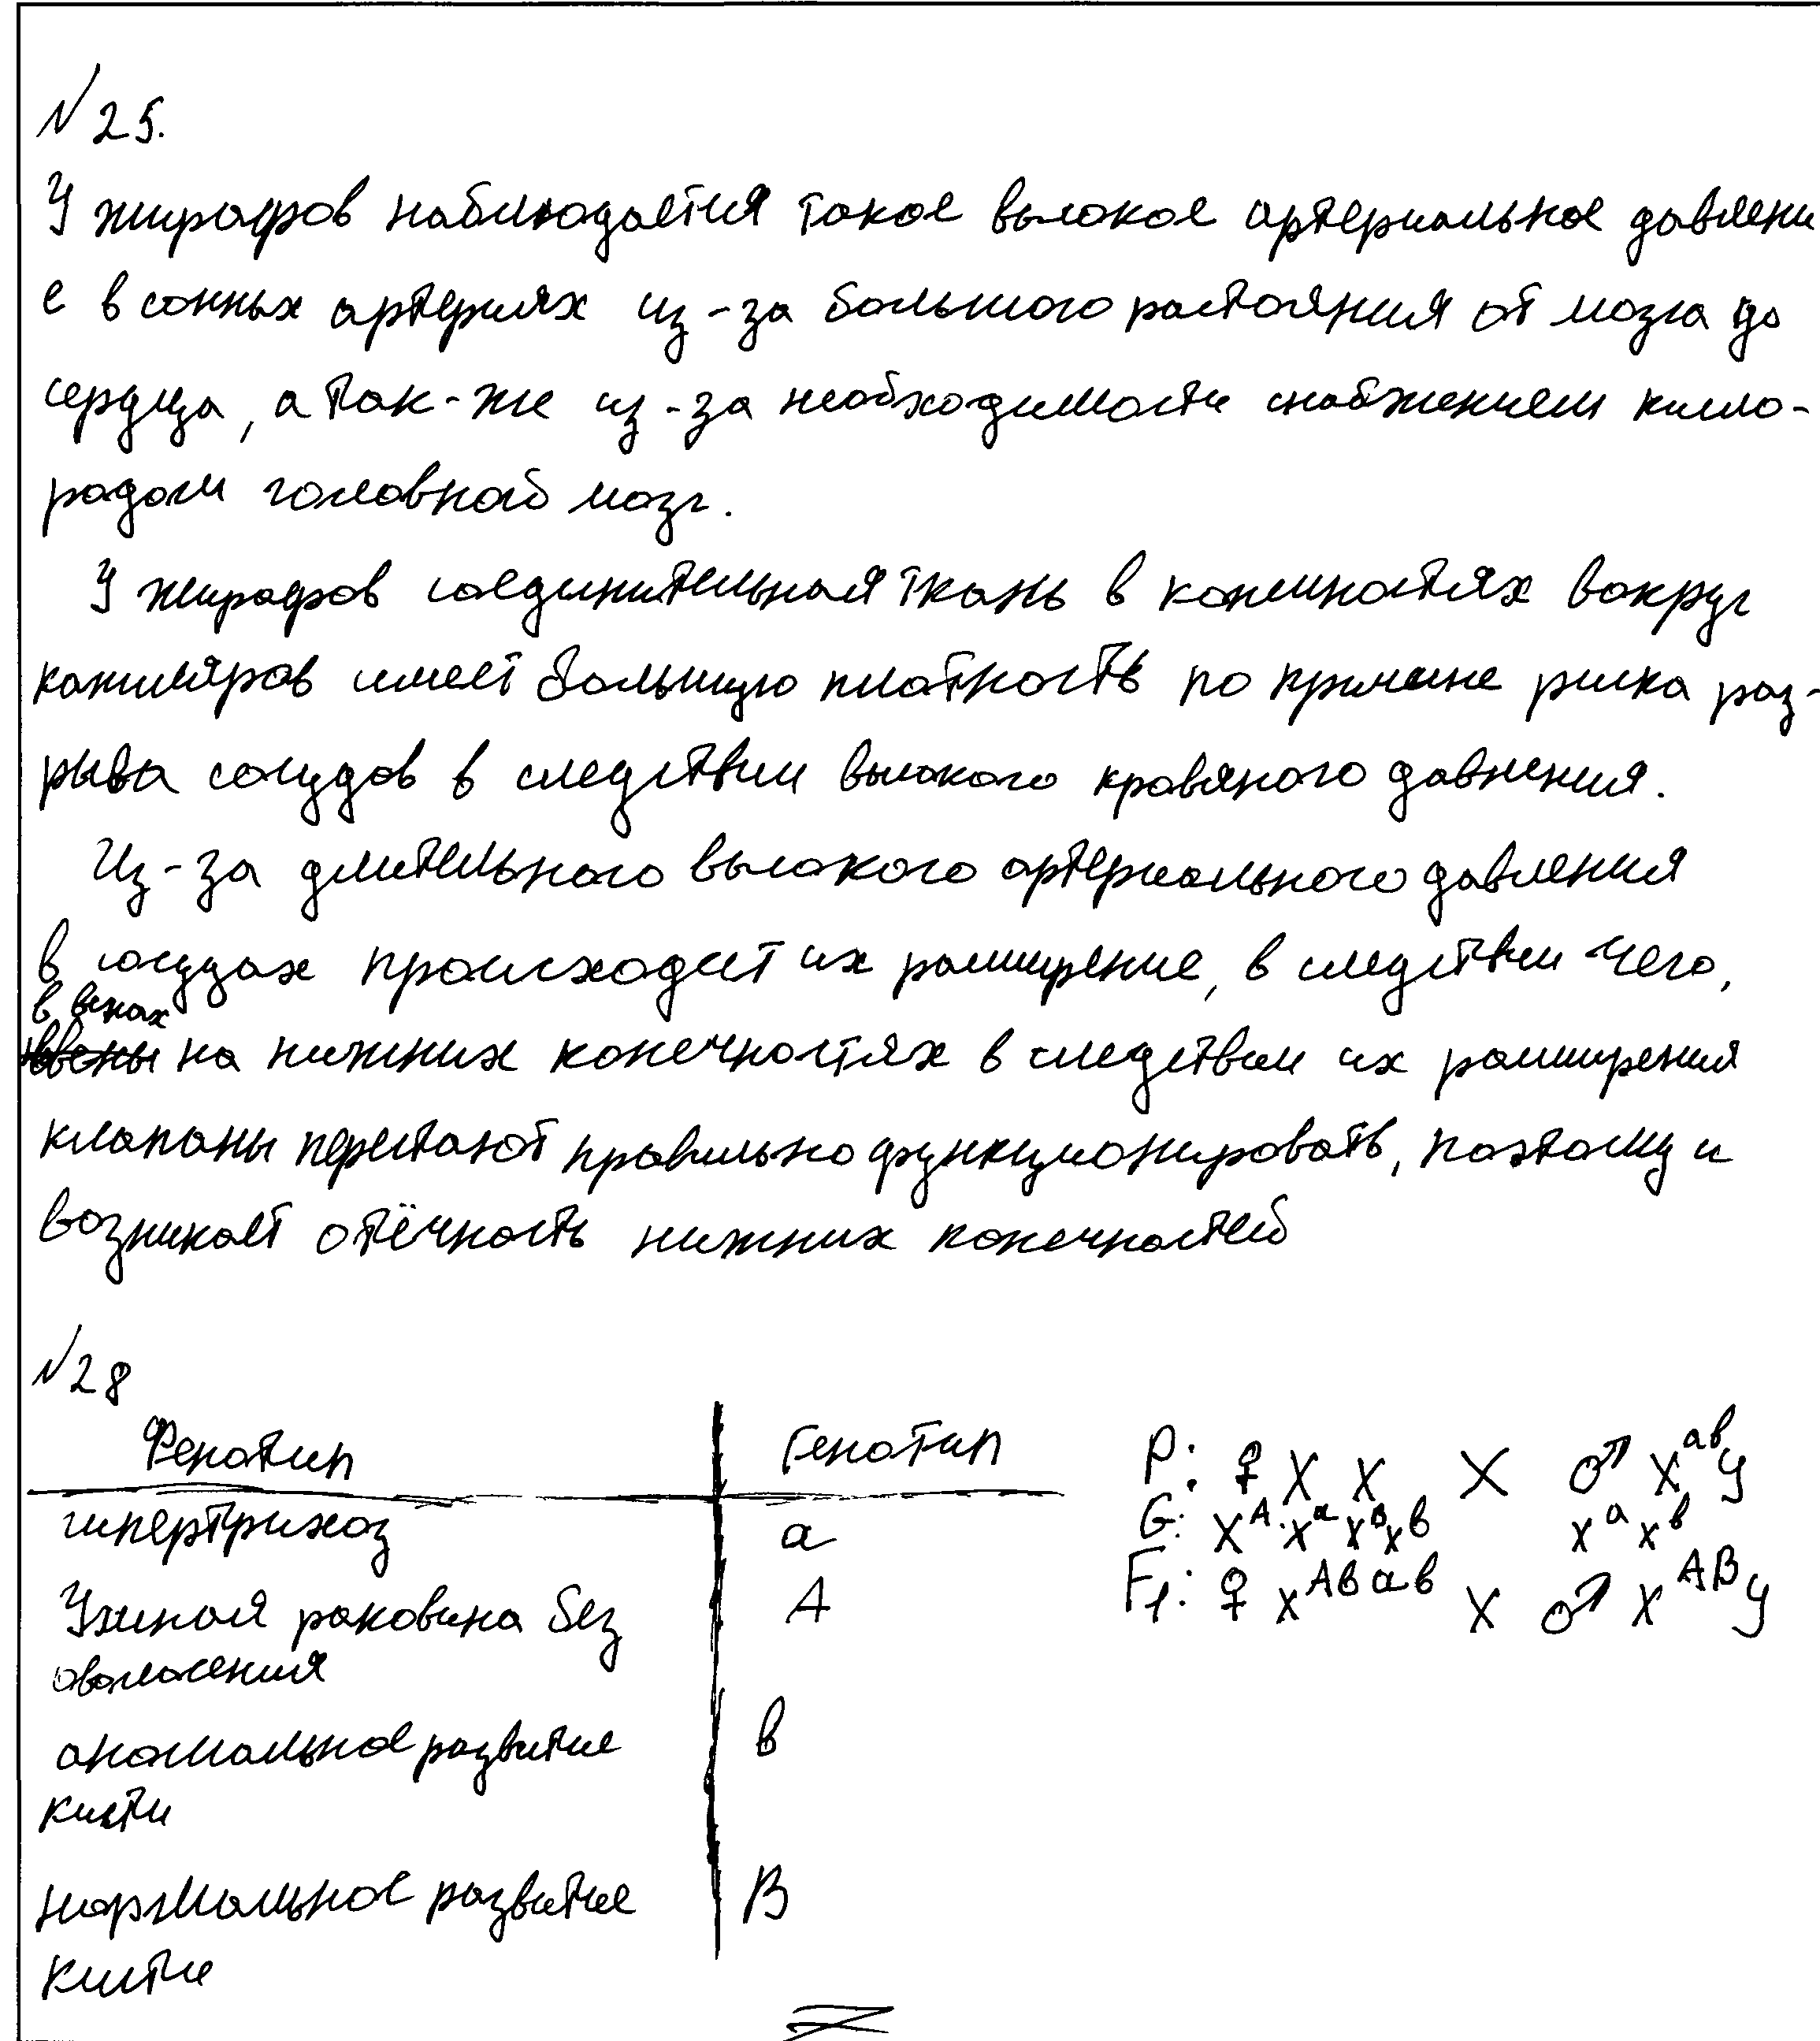 № 25.
У жирафов наблюдается такое высокое артериальное давлени
е в сонных артериях из-за большого растояния от мозга до
сердца, а так-же из-за необходимости снабжением кисло-
родом головной мозг.
У жирафов соединительная ткань в конечностях вокруг
капиляров имеет большую плотность по причине риска раз-
рыва сосудов в следствии высокого кровяного давнения.
Из-за длительного высокого артериального давления
в сосудах происходит их расширение, в следствии чего,
в венах
на нижних конечностях в следствии их расширения
клапаны перестают правильно функционировать, поэтому и
возникает отёчность нижних конечностей
№ 28
Фенотип Генотип P: ♀ X X X ♂ X^ав У
гипертрихоз а G: X^A. X^a X^B X^в X^a X^в
Ушная раковина без А F1: ♀ X^Ав ав X ♂ X^АВ У
оволосения
аномальное развитие в
кисти
нормальное развитие В
кисти